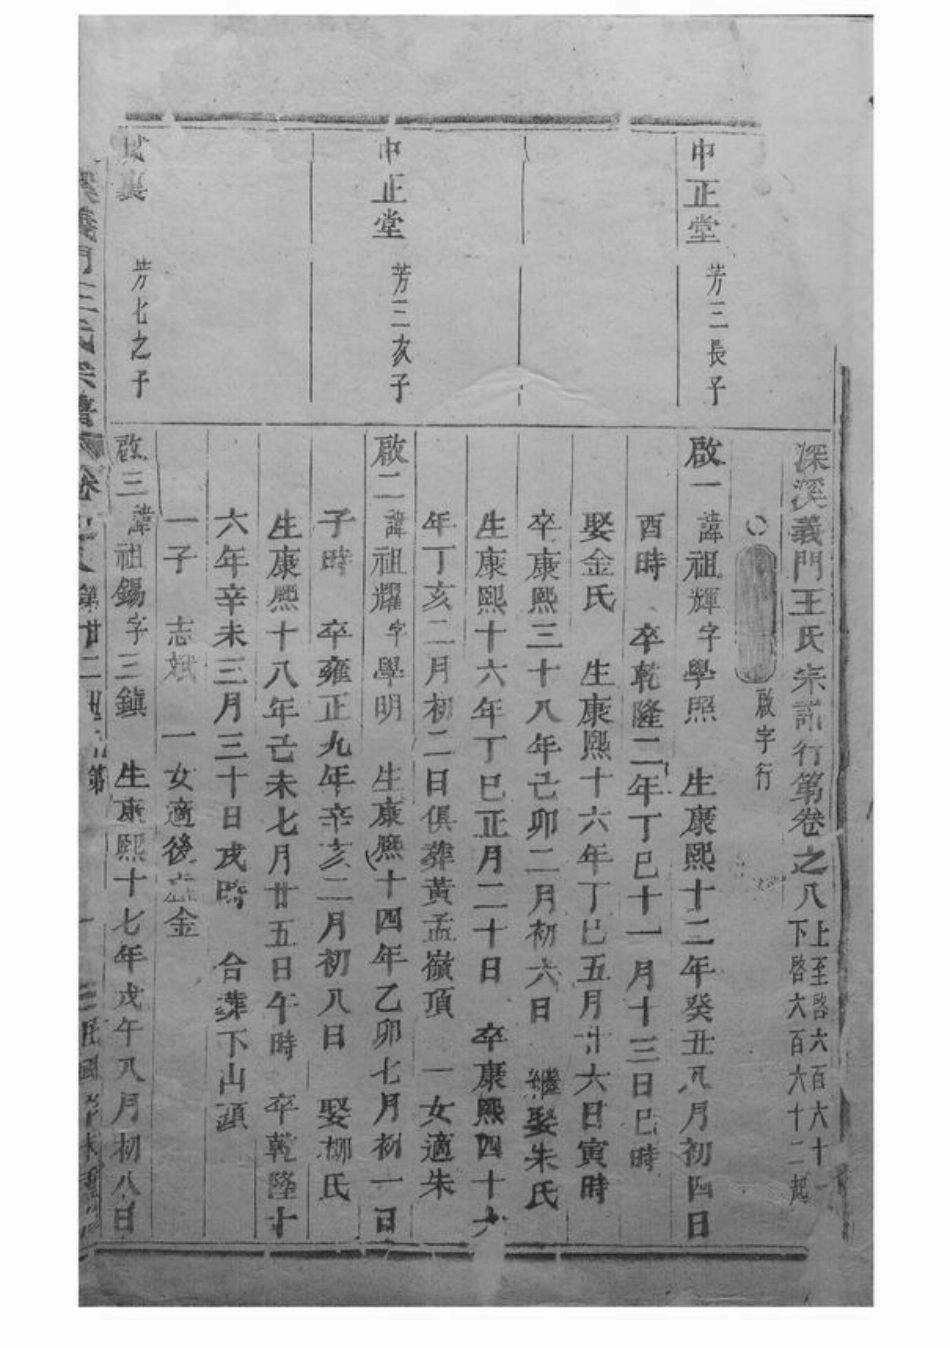 深溪義門王氏宗譜行第卷之八上至啓六百六十一
下啓六百六十二起
啟字行
中正堂
芳三長子
啟一諱祖輝字學照 生康熙十二年癸丑八月初四日
酉時 卒乾隆二年丁巳十一月十三日巳時
娶金氏 生康熙十六年丁巳五月廿六日寅時
卒康熙三十八年己卯二月初六日 繼娶朱氏
生康熙十六年丁巳正月二十日 卒康熙四十六
年丁亥二月初二日俱葬黃孟嶺頂 一女適朱
中正堂
芳三次子
啟二諱祖耀字學明 生康熙十四年乙卯七月初一日
子時 卒雍正九年辛亥二月初八日 娶柳氏
生康熙十八年己未七月廿五日午時 卒乾隆十
六年辛未三月三十日戌時 合葬下山頭
一子 志斌 一女適後金
裏
芳七之子
啟三諱祖錫字三鎮 生康熙十七年戊午八月初八日
義門王氏宗譜 卷 第廿二 第
民國